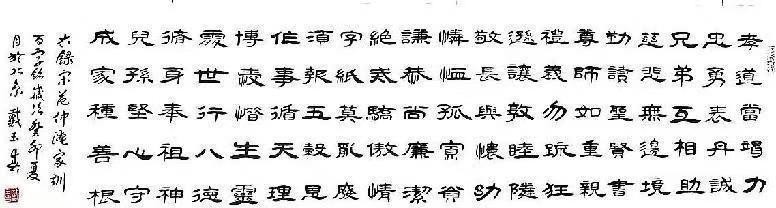 孝道當竭力
忠勇表丹誠
兄弟互相助
慈悲無邊境
勤讀聖賢書
尊師如重親
禮義勿疏狂
遜讓敦睦隣
敬長與懷幼
憐恤孤寡貧
謙恭尚廉潔
絕戒驕傲情
字紙莫亂廢
須報五穀恩
作事循天理
博愛惜生靈
處世行八德
脩身奉祖神
兒孫堅心守
成家種善根
右錄宋范仲淹家訓
百字銘歲次癸卯夏
月於北京戴玉